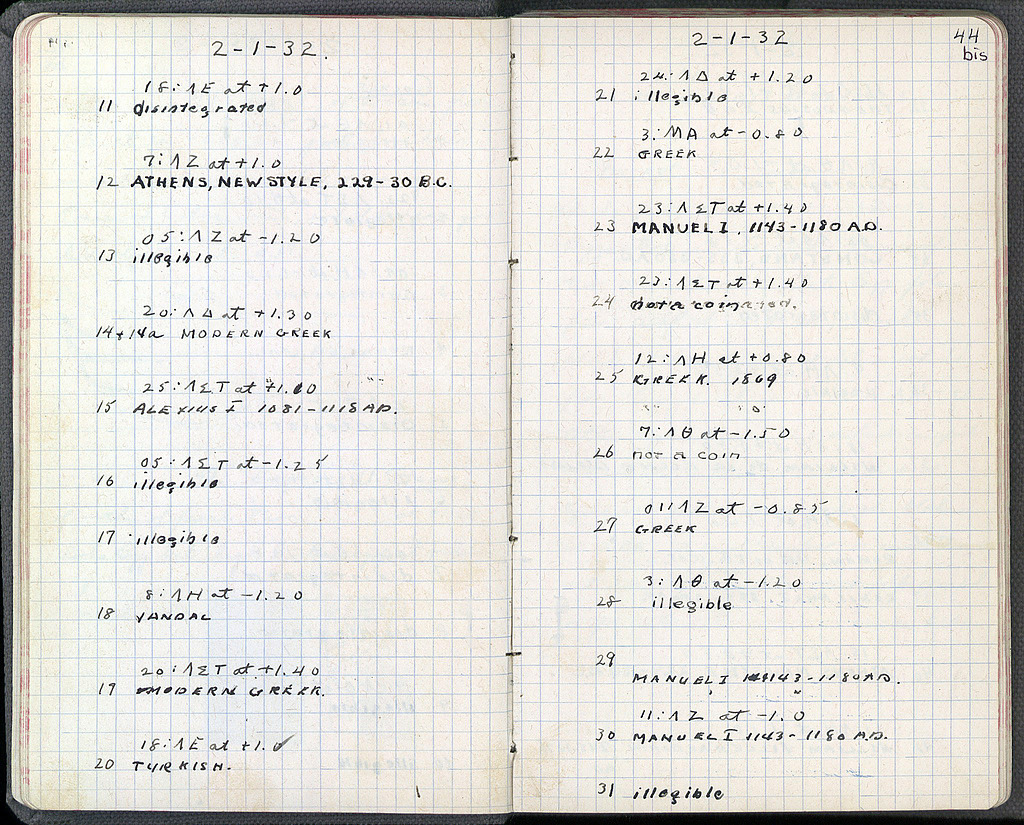 2-1-32.
18:ΛE at +1.0
11 disintegrated
7:ΛZ at +1.0
12 ATHENS, NEW STYLE, 229-30 B.C.
05:ΛZ at -1.20
13 illegible
20:ΛΔ at +1.30
14+14a MODERN GREEK
25:ΛΣT at +1.00
15 ALEXIUS I 1081-1118 A.D.
05:ΛΣT at -1.25
16 illegible
17 illegible
8:ΛH at -1.20
18 VANDAL
20:ΛΣT at +1.40
19 MODERN GREEK.
18:ΛE at +1.0
20 TURKISH.
2-1-32
44
bis
24:ΛΔ at +1.20
21 illegible
3:MA at -0.80
22 GREEK
23:ΛΣT at +1.40
23 MANUEL I, 1143-1180 A.D.
23:ΛΣT at +1.40
24 not a coin
12:ΛH at +0.80
25 GREEK. 1869
7:ΛΘ at -1.50
26 not a coin
011ΛZ at -0.85
27 GREEK
3:ΛΘ at -1.20
28 illegible
29
MANUEL I 1143-1180 A.D.
11:ΛZ at -1.0
30 MANUEL I 1143-1180 A.D.
31 illegible